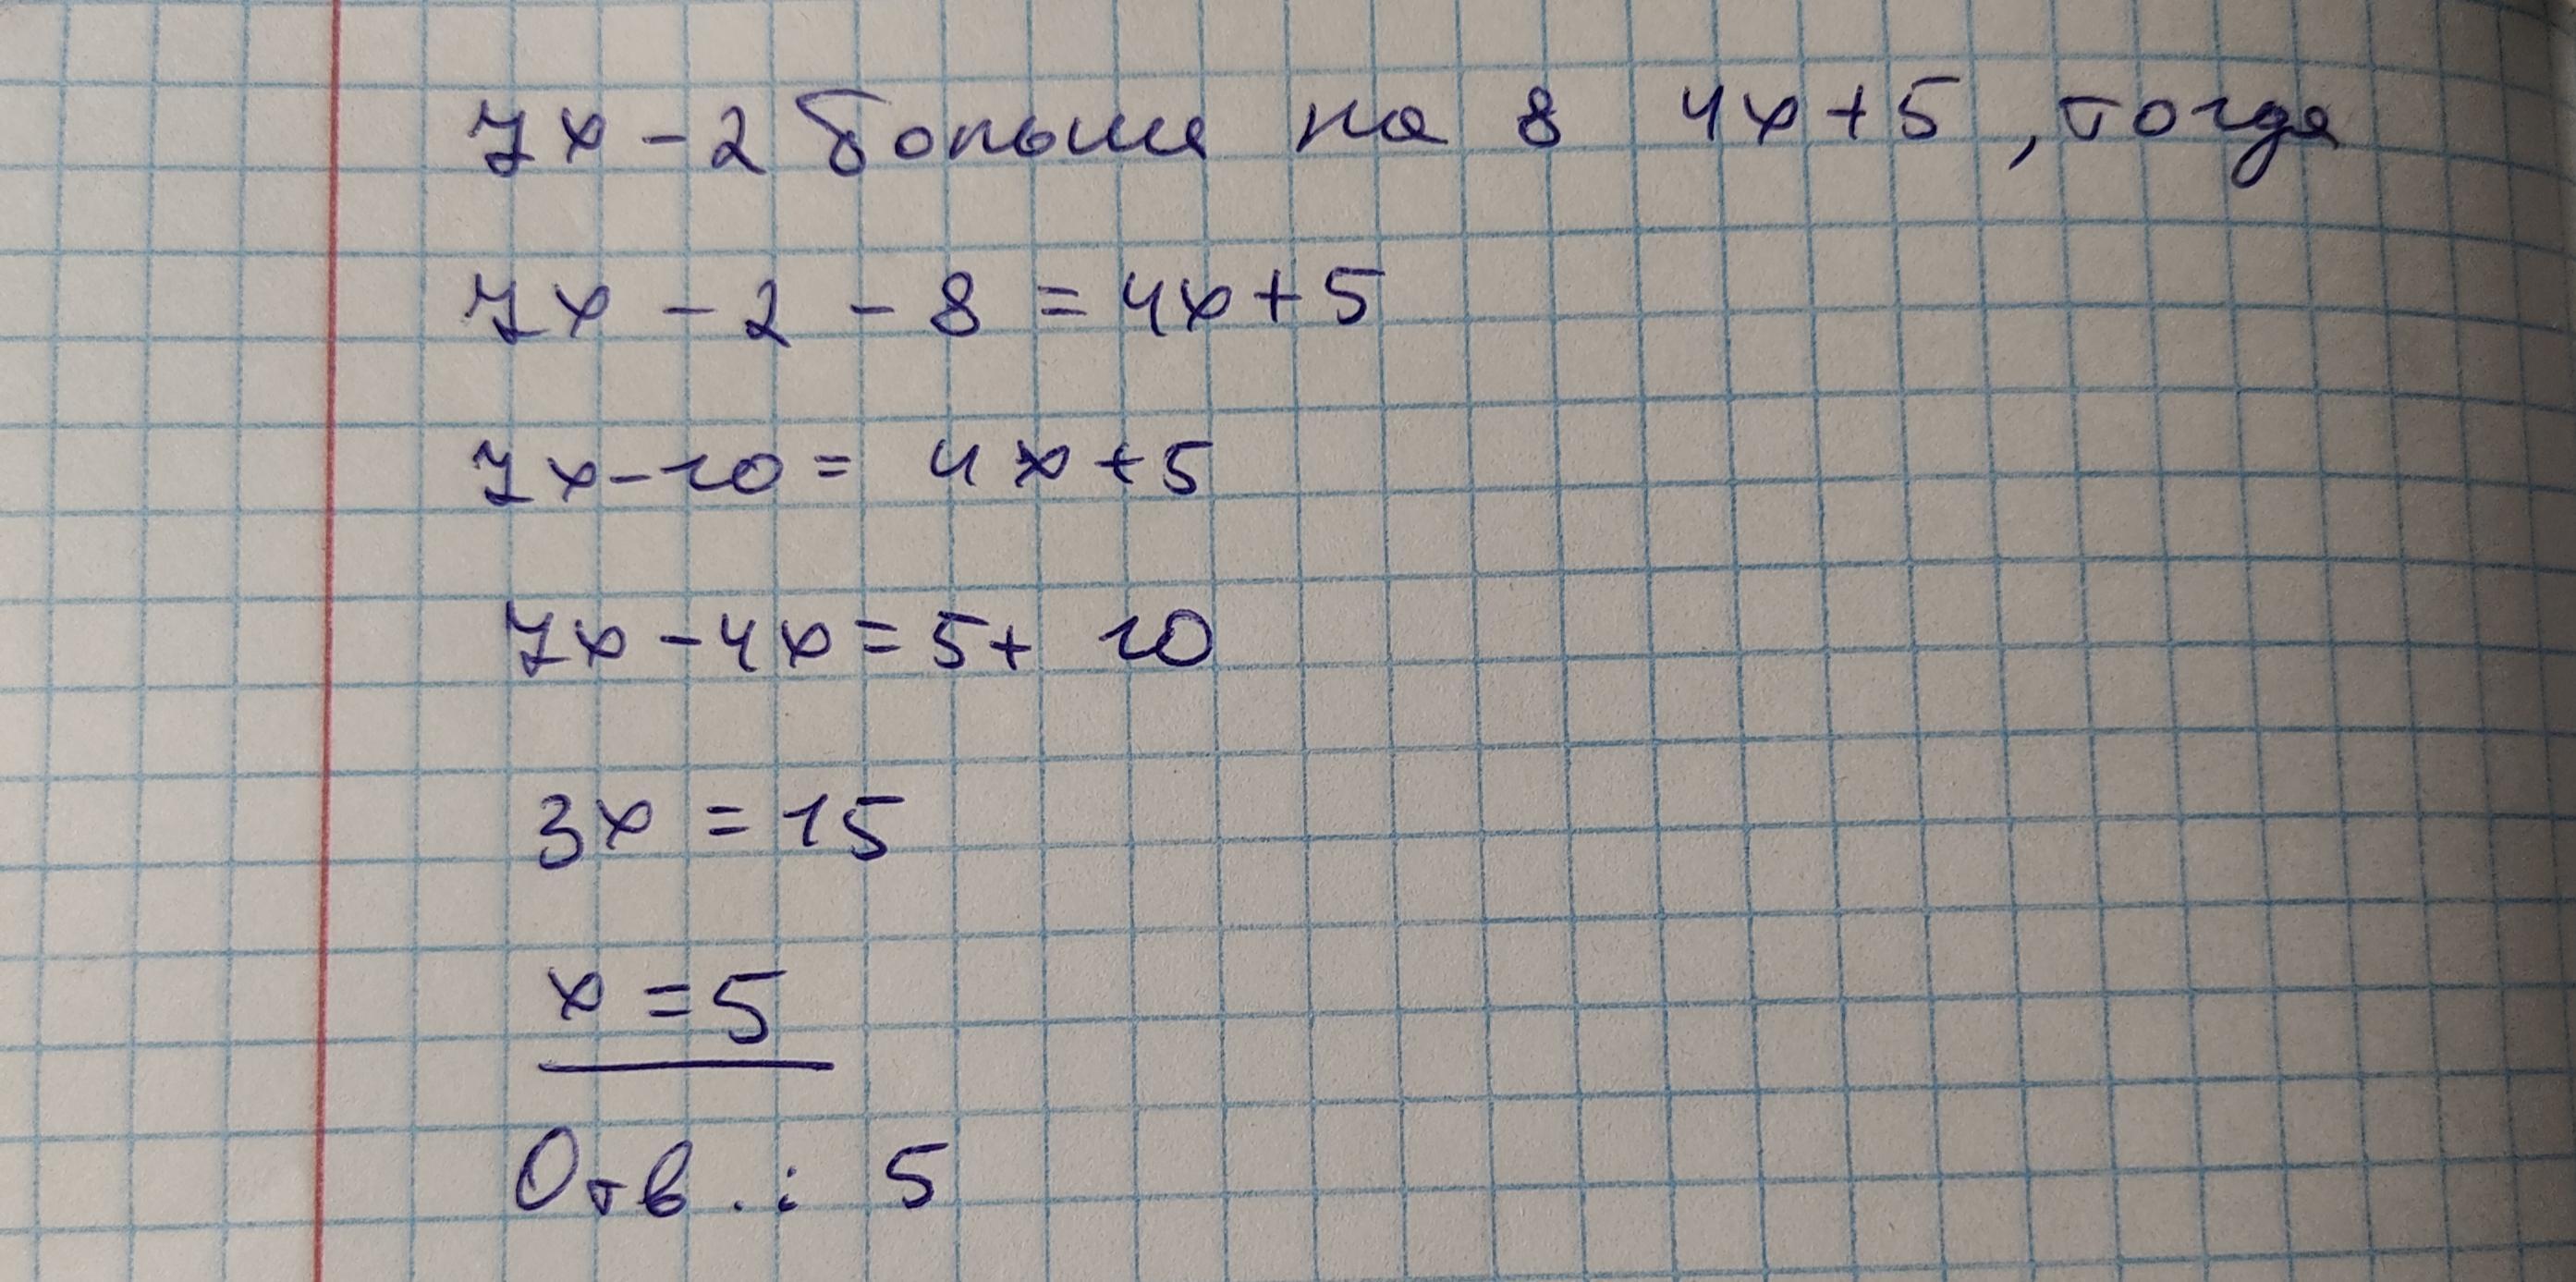 7x - 2 больше на 8 4x + 5, тогда
7x - 2 - 8 = 4x + 5
7x - 10 = 4x + 5
7x - 4x = 5 + 10
3x = 15
x = 5
Отв.: 5